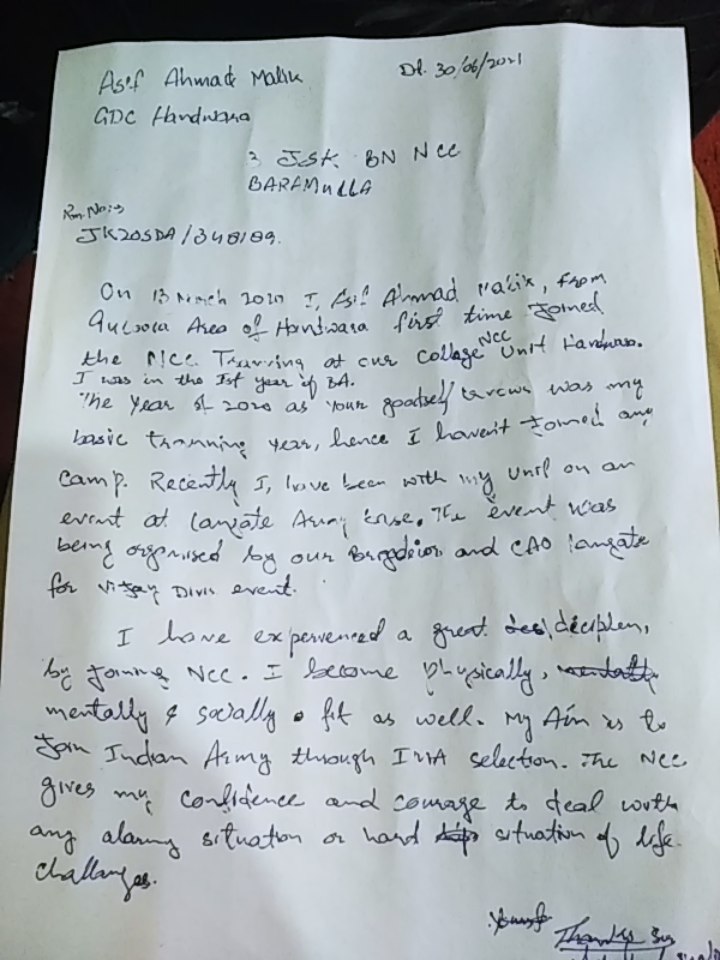 Asif Ahmad Malik
Dt. 30/06/2021
GDC Handwara
3 J&K BN NCC
BARAMULLA
JK20SDA/348189.
On 13 March 2020 I, Asif Ahmad Malik, from
Area of Handwara first time Joined
the NCC Training at our College NCC Unit Handwara.
I was in the Ist year of BA.
The year of 2020 as your goodself knows was my
basic trainning year, hence I haven't Joined any
camp. Recently I, have been with my unit on an
event at langate Army base. The event was
being organised by our and CAO langate
for Vijay Divis event.
I have experienced a great deciplen,
by Joining NCC. I become physically,
mentally & socially fit as well. My Aim is to
Join Indian Army through IMA selection. The NCC
gives my confidence and courage to deal with
any alarming situation or hard situation of life
challanges.
Thanks Sir